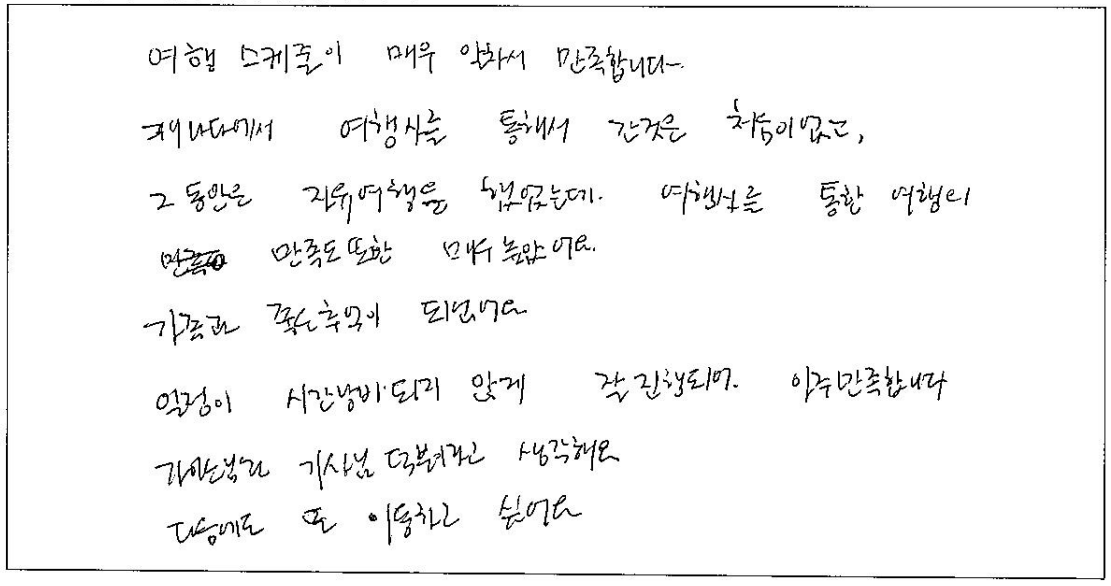 여행 스케줄이 매우 알차서 만족합니다~
캐나다에서 여행사를 통해서 간것은 처음이었고,
그 동안은 자유여행을 했었는데. 여행사를 통한 여행의
만족도 또한 매우 높았어요.
가족과 좋은추억이 되었어요
일정이 시간낭비 되지 않게 잘 진행되어. 아주만족합니다
기사님 덕분이라고 생각해요
다음에도 또 이용하고 싶어요